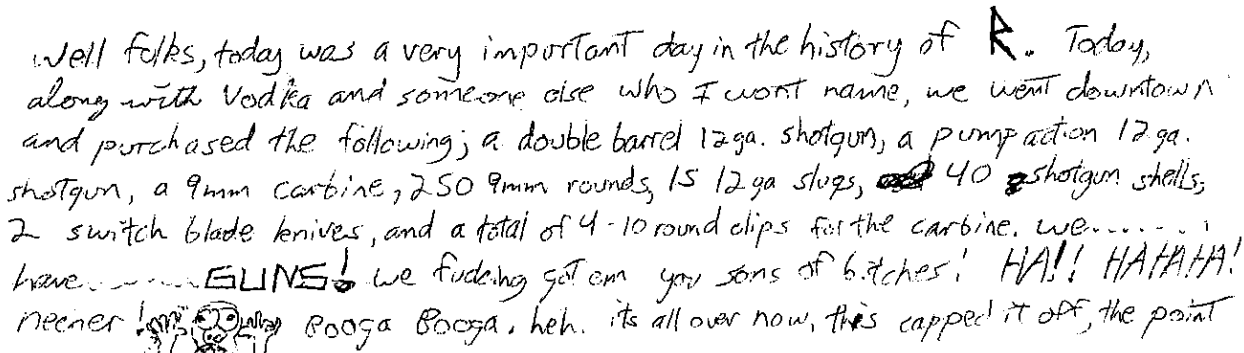 Well folks, today was a very important day in the history of R. Today,
along with Vodka and someone else who I wont name, we went downtown
and purchased the following; a double barrel 12ga. shotgun, a pump action 12ga.
shotgun, a 9mm carbine, 250 9mm rounds, 15 12ga slugs, 40 shotgun shells,
2 switch blade knives, and a total of 4-10 round clips for the carbine. we........
have........GUNS! we fucking got em you sons of bitches! HA!! HAHAHA!
neener! Booga Booga. heh. its all over now, this capped it off, the point